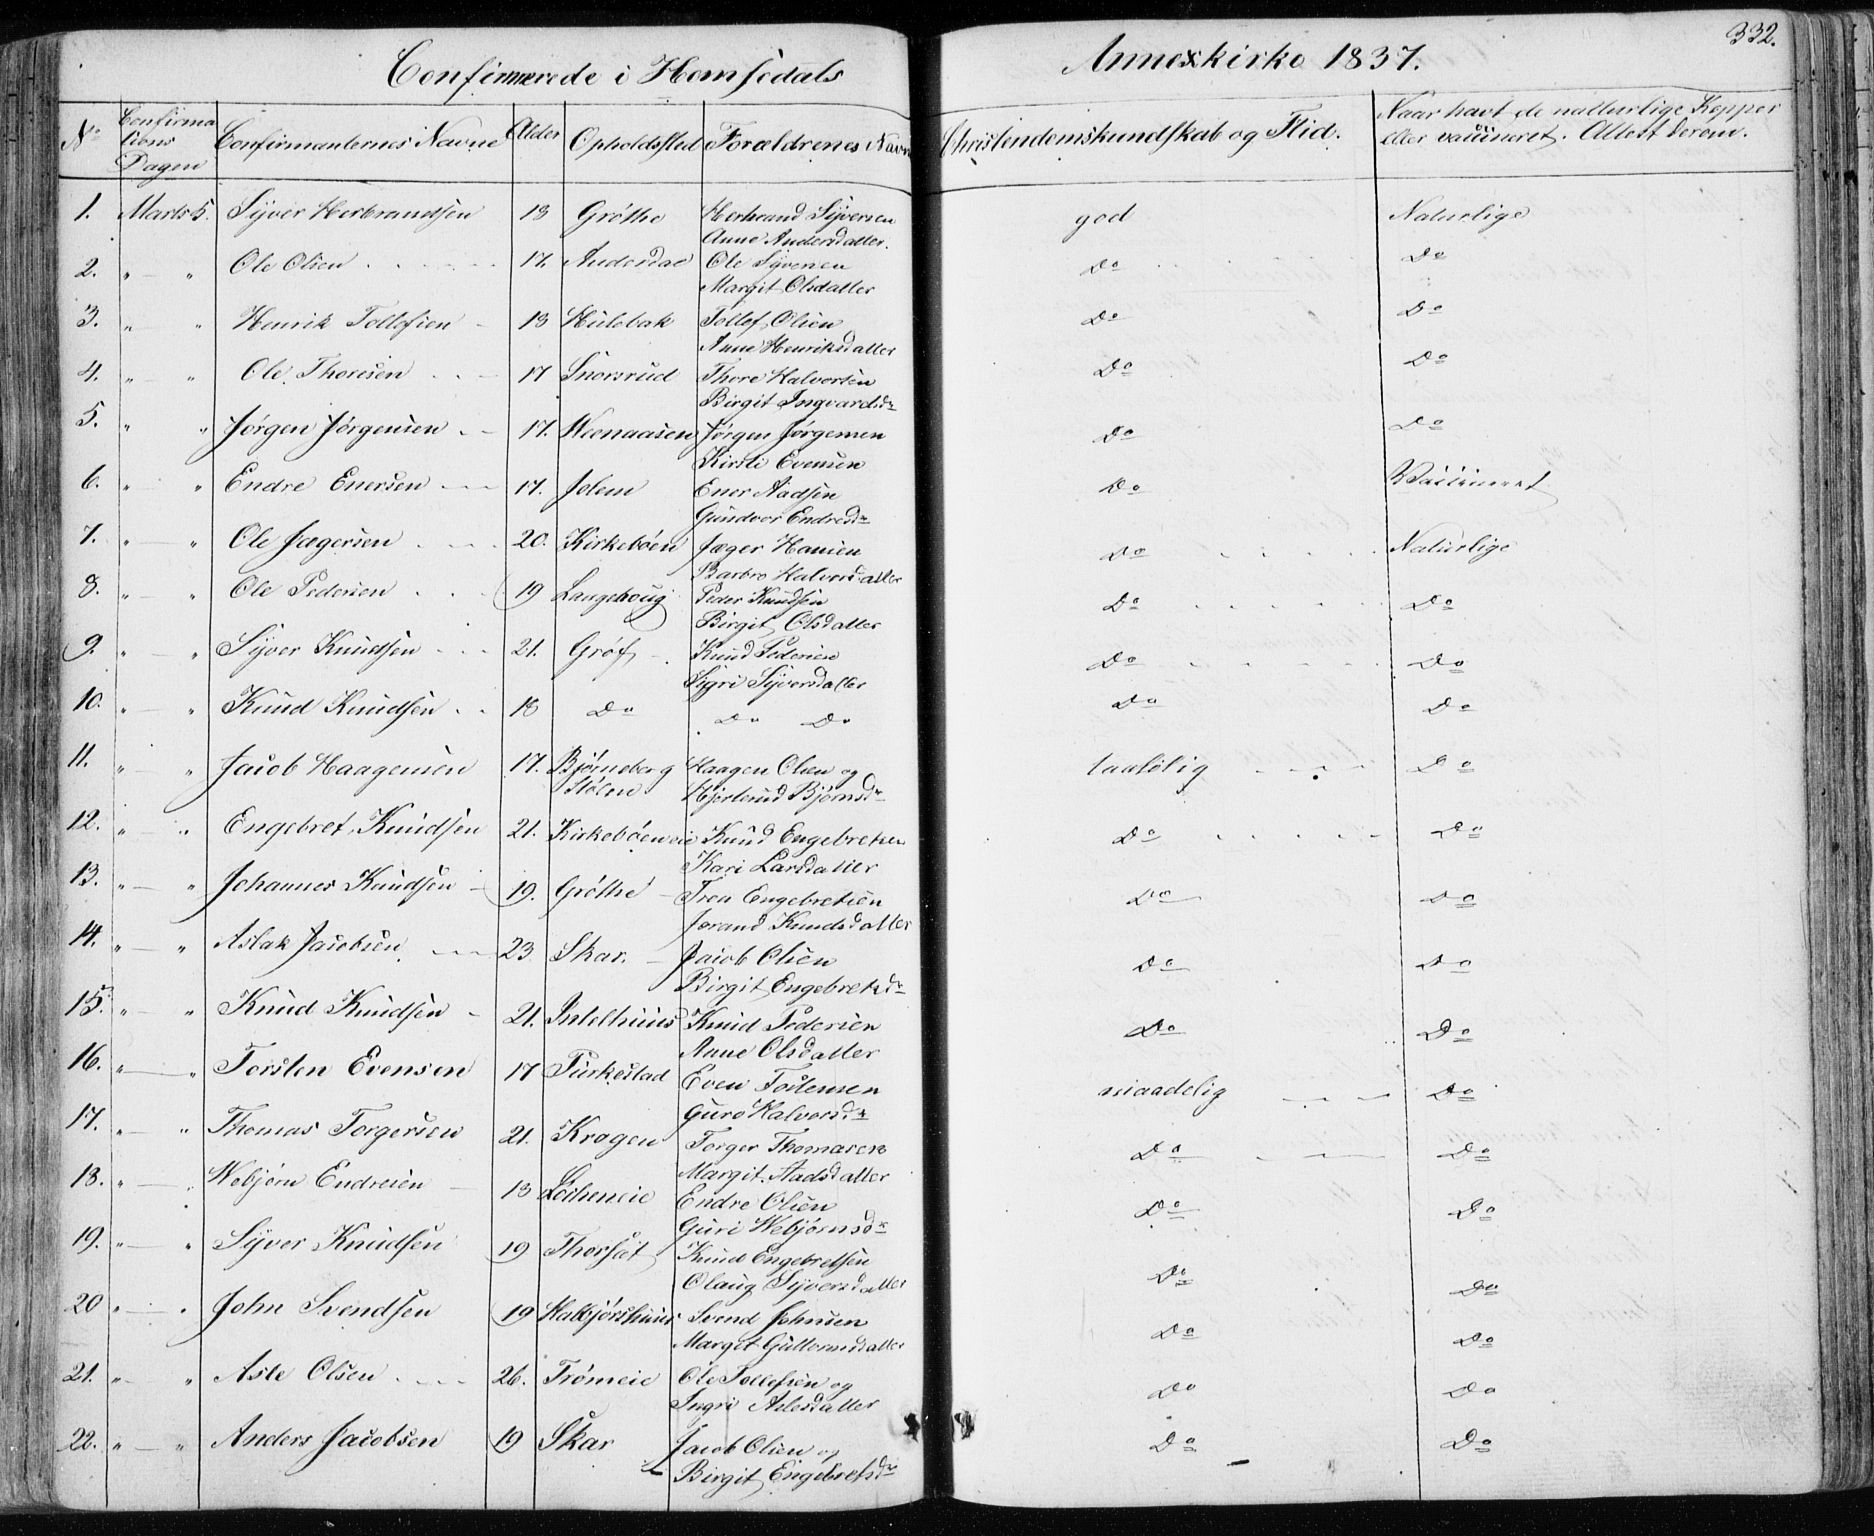 332.
Confirmerede i Hemsedals Annexkirke 1837.
No Confirmations Dagen Confirmanternes Navne Alder Opholdssted Forældrenes Navne Christendomskundskab og Flid. Naar havt de naturlige Kopper eller vaccineret. Attest derom.
1. Marts 5. Syver Herbrandsen 18 Grøthe Herbrand Syversen god Naturlige
Anne Andersdatter.
2. " — " Ole Olsen 17. Andersdae Ole Syversen Do Do
Margit Olsdatter
3. " " Henrik Tollefsen 18 Hulebak Tollef Olsen Do Do
Anne Henriksdatter
4. " — " Ole Thoresen 17 Snorsrud Thore Halvorsen Do Do
Birgit Ingvardsdr
5. " " Jørgen Jørgensen 17. Jørgen Jørgensen Do Do
Kirsti Evensen
6. " " Endre Enersen 17. Jolem Ener Aadsen Do Vaccineret
Gundvor Endresdr
7. " — " Ole Jægersen 20. Kirkebøen Jæger Hansen Do Naturlige
Barbro Halvorsdatter
8. " — " Ole Pedersen 19 Langehoug Peder Knudsen Do Do
Birgit Olsdatter
9. " — " Syver Knudsen 21. Grøf Knud Pedersen Do Do
Sigri Syversdatter
10. " " Knud Knudsen 18 Do Do Do Do Do
11. " " Jacob Haagensen 17. Bjørneberg Haagen Olsen og taalelig Do
Stølen Hjerterud Bjørnsdr
12. " — " Engebret Knudsen 21. Kirkebøen eie Knud Engebretsen Do Do
Kari Larsdatter
13. " — " Johannes Knudsen 19. Grøthe Engebretsen Do Do
Jorand Knudsdatter
14. " — " Aslak Jacobsen 23. Skar. Jacob Olsen Do Do
Birgit Engebretsdr
15. " — " Knud Knudsen 21. Intelhuus Knud Pedersen Do Do
Anne Olsdatter
16. " — " Torsten Evensen 17 Turkestad Even maadelig Do
Guro Halvorsdr
17. " " Thomas Torgersen 21. Krogen Torger Thomasen Do Do
Margit Aadsdatter
18. " — Webjørn Endresen 18 Endre Olsen Do Do
Guri Webjørnsdr
19. " — " Syver Knudsen 19 Thorset Knud Engebretsen Do Do
Olaug Syversdatter
20 " — " John Svendsen 19 Halbjørshuus Svend Johnsen Do Do
Margit Guttormsdatter
21. " — " Asle Olsen 26. Trømeie Ole Tollefsen og Do Do
Ingri Aslesdatter
22. " — " Anders Jacobsen 19 Skar Jacob Olsen og Do Do
Birgit Engebretsdr